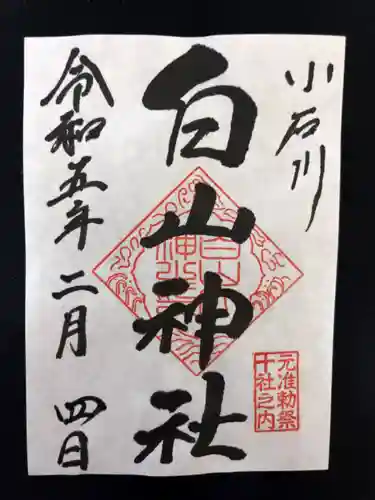 小石川
白山神社
令和五年 二月 四日
元准勅祭
十社之内